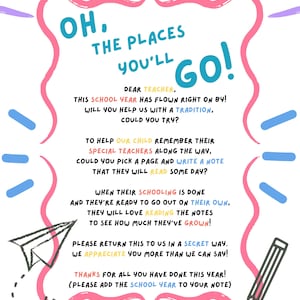 OH,
THE PLACES
YOU'LL
GO!
DEAR TEACHER,
THIS SCHOOL YEAR HAS FLOWN RIGHT ON BY!
WILL YOU HELP US WITH A TRADITION,
COULD YOU TRY?
TO HELP OUR CHILD REMEMBER THEIR
SPECIAL TEACHERS ALONG THE WAY,
COULD YOU PICK A PAGE AND WRITE A NOTE
THAT THEY WILL READ SOME DAY?
WHEN THEIR SCHOOLING IS DONE
AND THEY'RE READY TO GO OUT ON THEIR OWN.
THEY WILL LOVE READING THE NOTES
TO SEE HOW MUCH THEY'VE GROWN!
PLEASE RETURN THIS TO US IN A SECRET WAY.
WE APPRECIATE YOU MORE THAN WE CAN SAY!
THANKS FOR ALL YOU HAVE DONE THIS YEAR!
(PLEASE ADD THE SCHOOL YEAR TO YOUR NOTE)